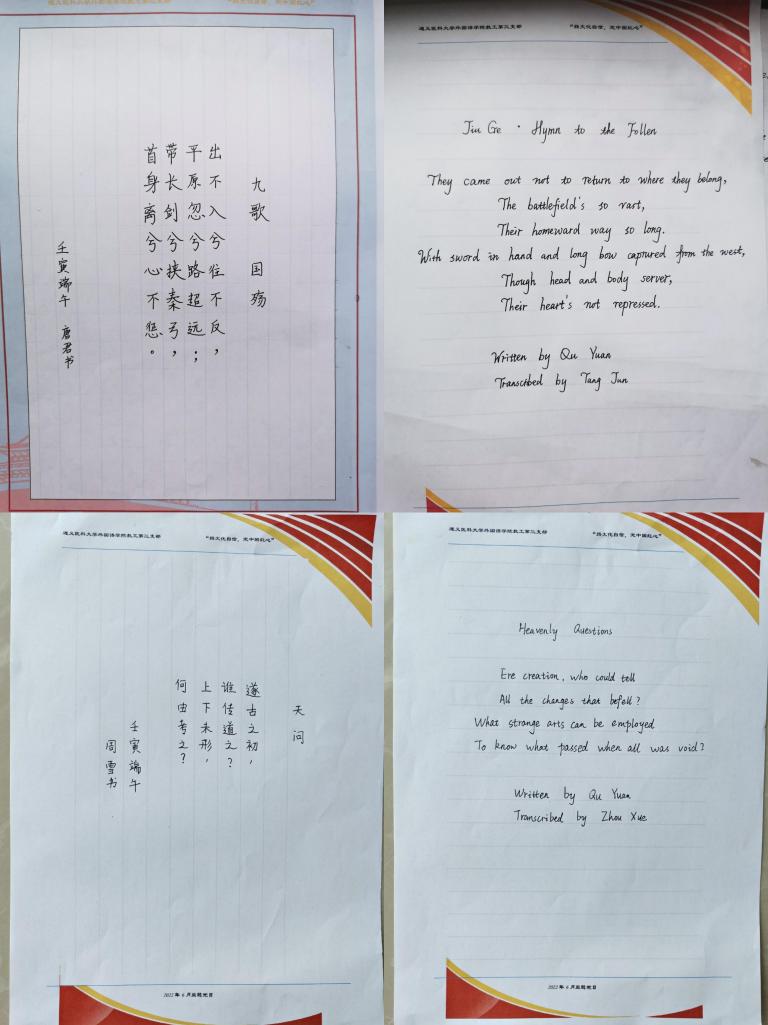 遵义医科大学外国语学院教工第三支部 “扬文化自信，充中国红心”
九歌 国殇
出不入兮往不反，
平原忽兮路超远；
带长剑兮挟秦弓，
首身离兮心不惩。
壬寅端午 唐君书
遵义医科大学外国语学院教工第三支部 “扬文化自信，充中国红心”
Jiu Ge · Hymn to the Fallen
They came out not to return to where they belong,
The battlefield's so vast,
Their homeward way so long.
With sword in hand and long bow captured from the west,
Though head and body server,
Their heart's not repressed.
Written by Qu Yuan
Transcribed by Tang Jun
遵义医科大学外国语学院教工第三支部 “扬文化自信，充中国红心”
天问
遂古之初，
谁传道之？
上下未形，
何由考之？
壬寅端午
周雪书
2022年6月主题党日
遵义医科大学外国语学院教工第三支部 “扬文化自信，充中国红心”
Heavenly Questions
Ere creation, who could tell
All the changes that befell?
What strange arts can be employed
To know what passed when all was void?
Written by Qu Yuan
Transcribed by Zhou Xue
2022年6月主题党日